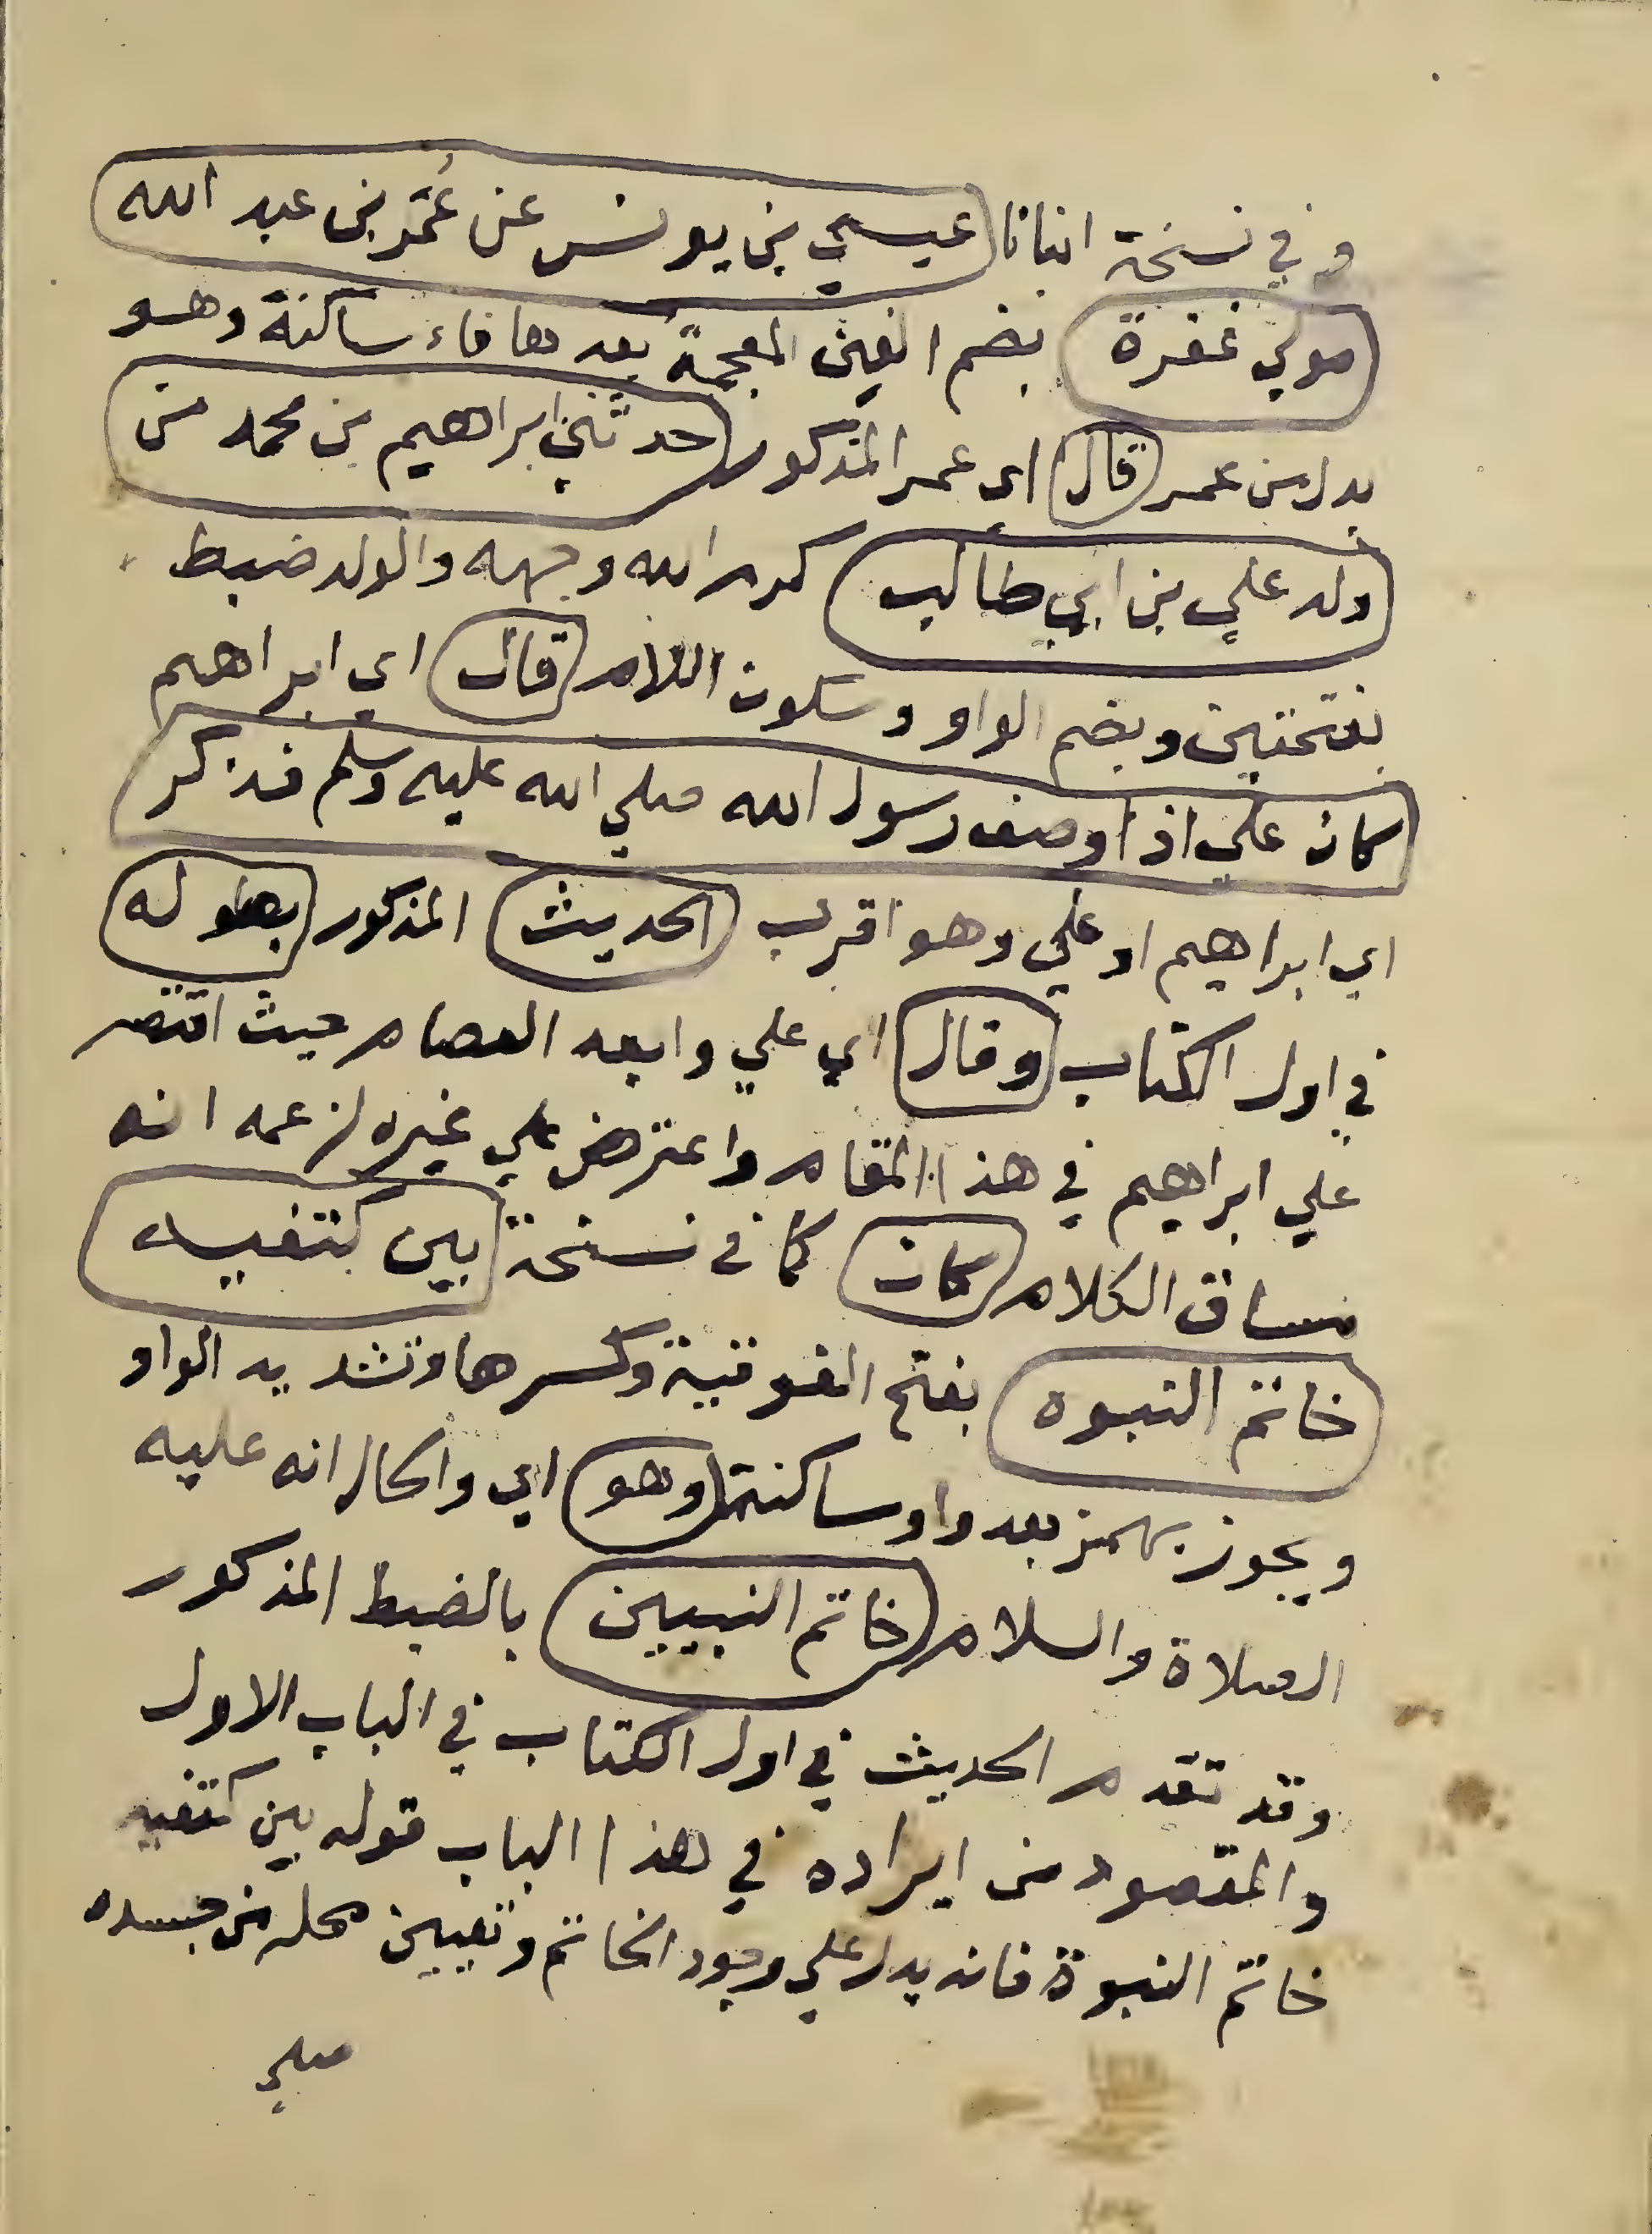 وفي نسخة انبانا عيسي بن يونس عن عُمَر بن عبد الله
مولي غفرة بضم الغين المعجمة بعدها فاء ساكنة وهو
بدل من عمر قال اي عمر المذكور حدثني ابراهيم بن محمد من
ولد علي بن ابي طالب كرم الله وجهه والولد ضبط
بفتحتين وبضم الواو وسكون اللام قال اي ابراهيم
كان علي اذا وصف رسول الله صلي الله عليه وسلم فذكر
اي ابراهيم او علي وهو اقرب الحديث المذكور بطوله
في اول الكتاب وقال اي علي وابعد العصام حيث اقتصر
علي ابراهيم في هذا المقام واعترض علي غيره لزعمه انه
مساق الكلام كان كما في نسخة بين كتفيه
خاتم النبوه بفتح الفوقية وكسرها وتشديد الواو
ويجوز بهمز بعد واو ساكنة وهو اي والحال انه عليه
الصلاة والسلام خاتم النبيين بالضبط المذكور
وقد تقدم الحديث في اول الكتاب في الباب الاول
والمقصود من ايراده في هذا الباب قوله بين كتفيه
خاتم النبوة فانه يدل علي وجود الخاتم وتعيين محله من جسده
صلي